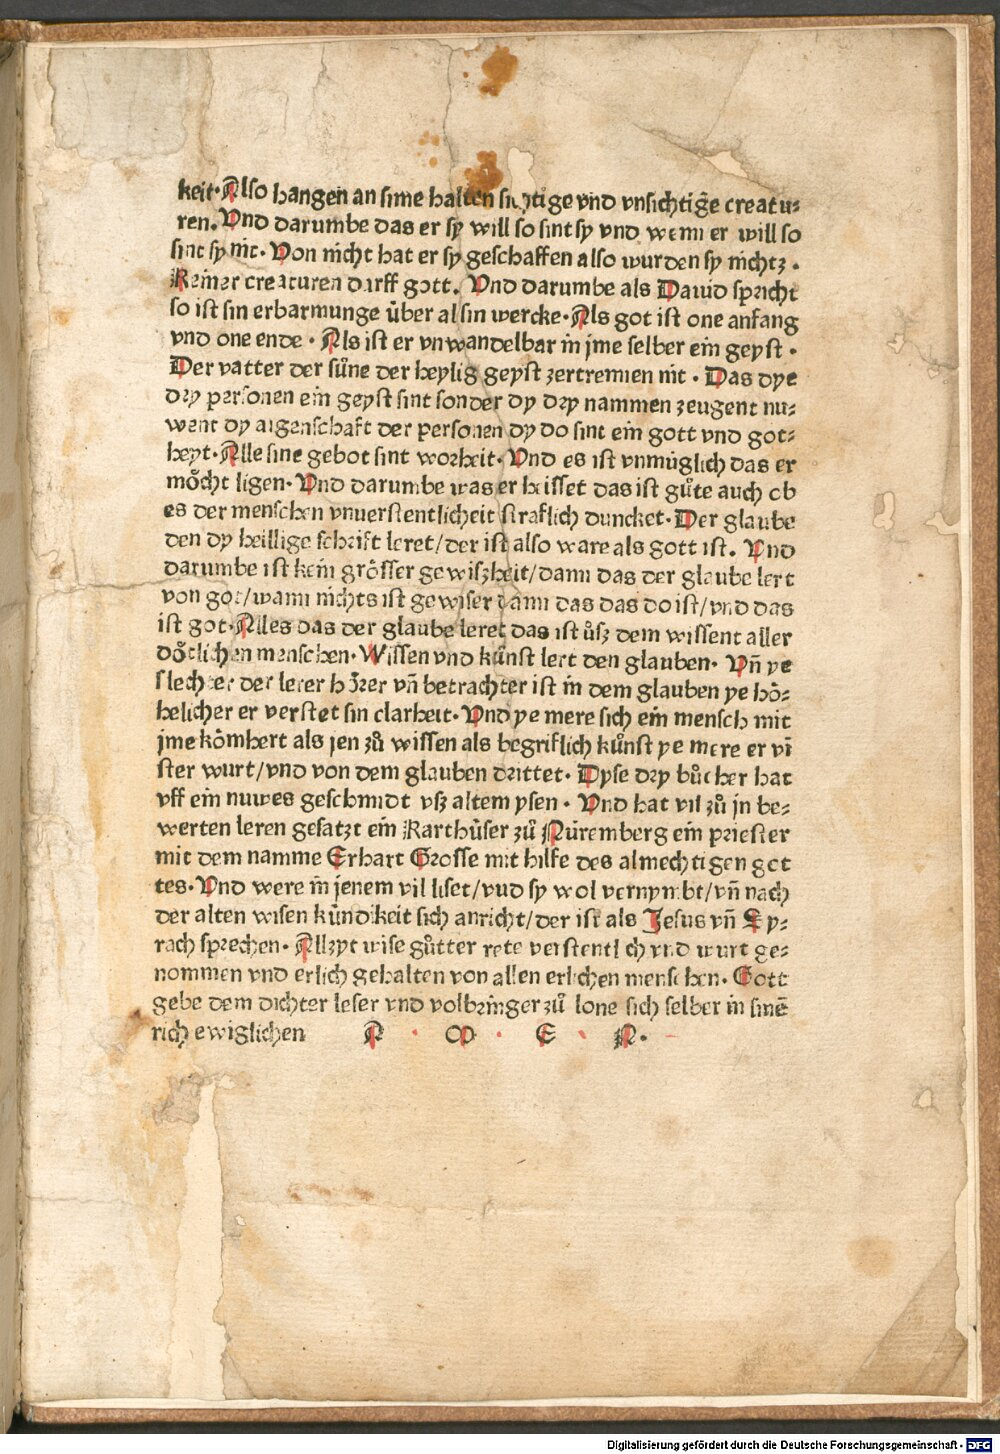 keit· Also hangen an sime halten sichtige vnd vnsichtigē creatu⸗
ren. Vnd darumbe das er sy will so sint sy vnd wenn er will so
sint sy nit· Von nicht hat er sy geschaffen also wurden sy nichtz·
Keiner creaturen darff gott. Vnd darumbe als Dauid spricht
so ist sin erbarmunge über al sin wercke· Als got ist one anfang
vnd one ende· Als ist er vnwandelbar in jme selber ein geyst·
Der vatter der sůne der heylig geyst zertrennen nit· Das dye
dry personen ein geyst sint sonder dy dry nammen zeugent nu⸗
went dy aigenschaft der personen dy do sint ein gott vnd got⸗
heyt· Alle sine gebot sint worheit· Vnd es ist vnmüglich das er
möcht ligen· Vnd darumbe was er heisset das ist gůte auch ob
es der menschen vnuerstentlicheit straflich duncket· Der glaube
den dy heillige schrift leret/der ist also ware als gott ist. Vnd
darumbe ist kein grösser gewiszheit/dann das der glaube lert
von got/wann nichts ist gewiser dann das das do ist/vnd das
ist got· Alles das der glaube leret das ist ůsz dem wissent aller
dötlichen menschen· Wissen vnd kůnst lert den glauben· Vn̄ ye
slechter der lerer hörer vn̄ betrachter ist in dem glauben ye hö⸗
helicher er verstet sin clarheit· Vnd ye mere sich ein mensch mit
jme kömbert als jen zů wissen als begriflich kůnst ye mere er vi
ster wurt/vnd von dem glauben drittet· Dyse dry bůcher hat
vff ein nuwes geschmidt vsz altem ysen· Vnd hat vil zů jn be⸗
werten leren gesatzt ein Karthüser zů Nüremberg ein priester
mit dem namme Erhart Grosse mit hilfe des almechtigen got
tes· Vnd were in jenem vil liset/vud sy wol vernymbt/vn̄ nach
der alten wisen kündikeit sich anricht/der ist als Jesus vn̄ Sy⸗
rach sprechen· Allzyt wise gůtter rete verstentlich vnd wurt ge⸗
nommen vnd erlich gehalten von allen erlichen menschen· Gott
gebe dem dichter leser vnd volbringer zů lone sich selber in sinē
rich ewiglichen A · M · E · N·
Digitalisierung gefördert durch die Deutsche Forschungsgemeinschaft - DFG